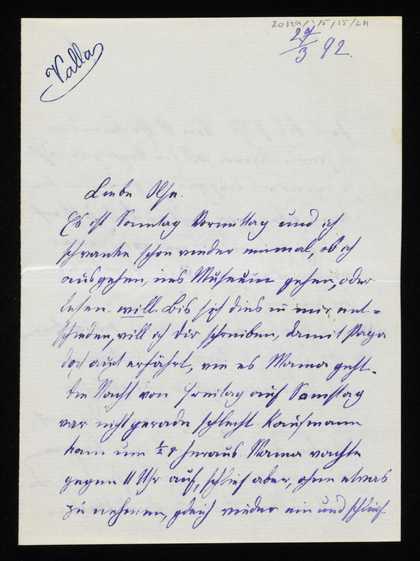 Valla
27/3 92.
Liebe Olse.
Es ist Sonntag Vormittag und ich
schwanke schon wieder einmal, ob ich
ausgehen, ins Museum gehen, oder
lesen will. Bis sich dies in mir ent-
schieden, will ich dir schreiben, damit Papa
doch auch erfährt, wie es Mama geht.
Die Nacht von Freitag auf Samstag
war nicht gerade schlecht. Kaufmann
kam um heraus. Mama wachte
gegen 11 Uhr auf, schlief aber, ohne etwas
zu nehmen, gleich wieder ein und schlief